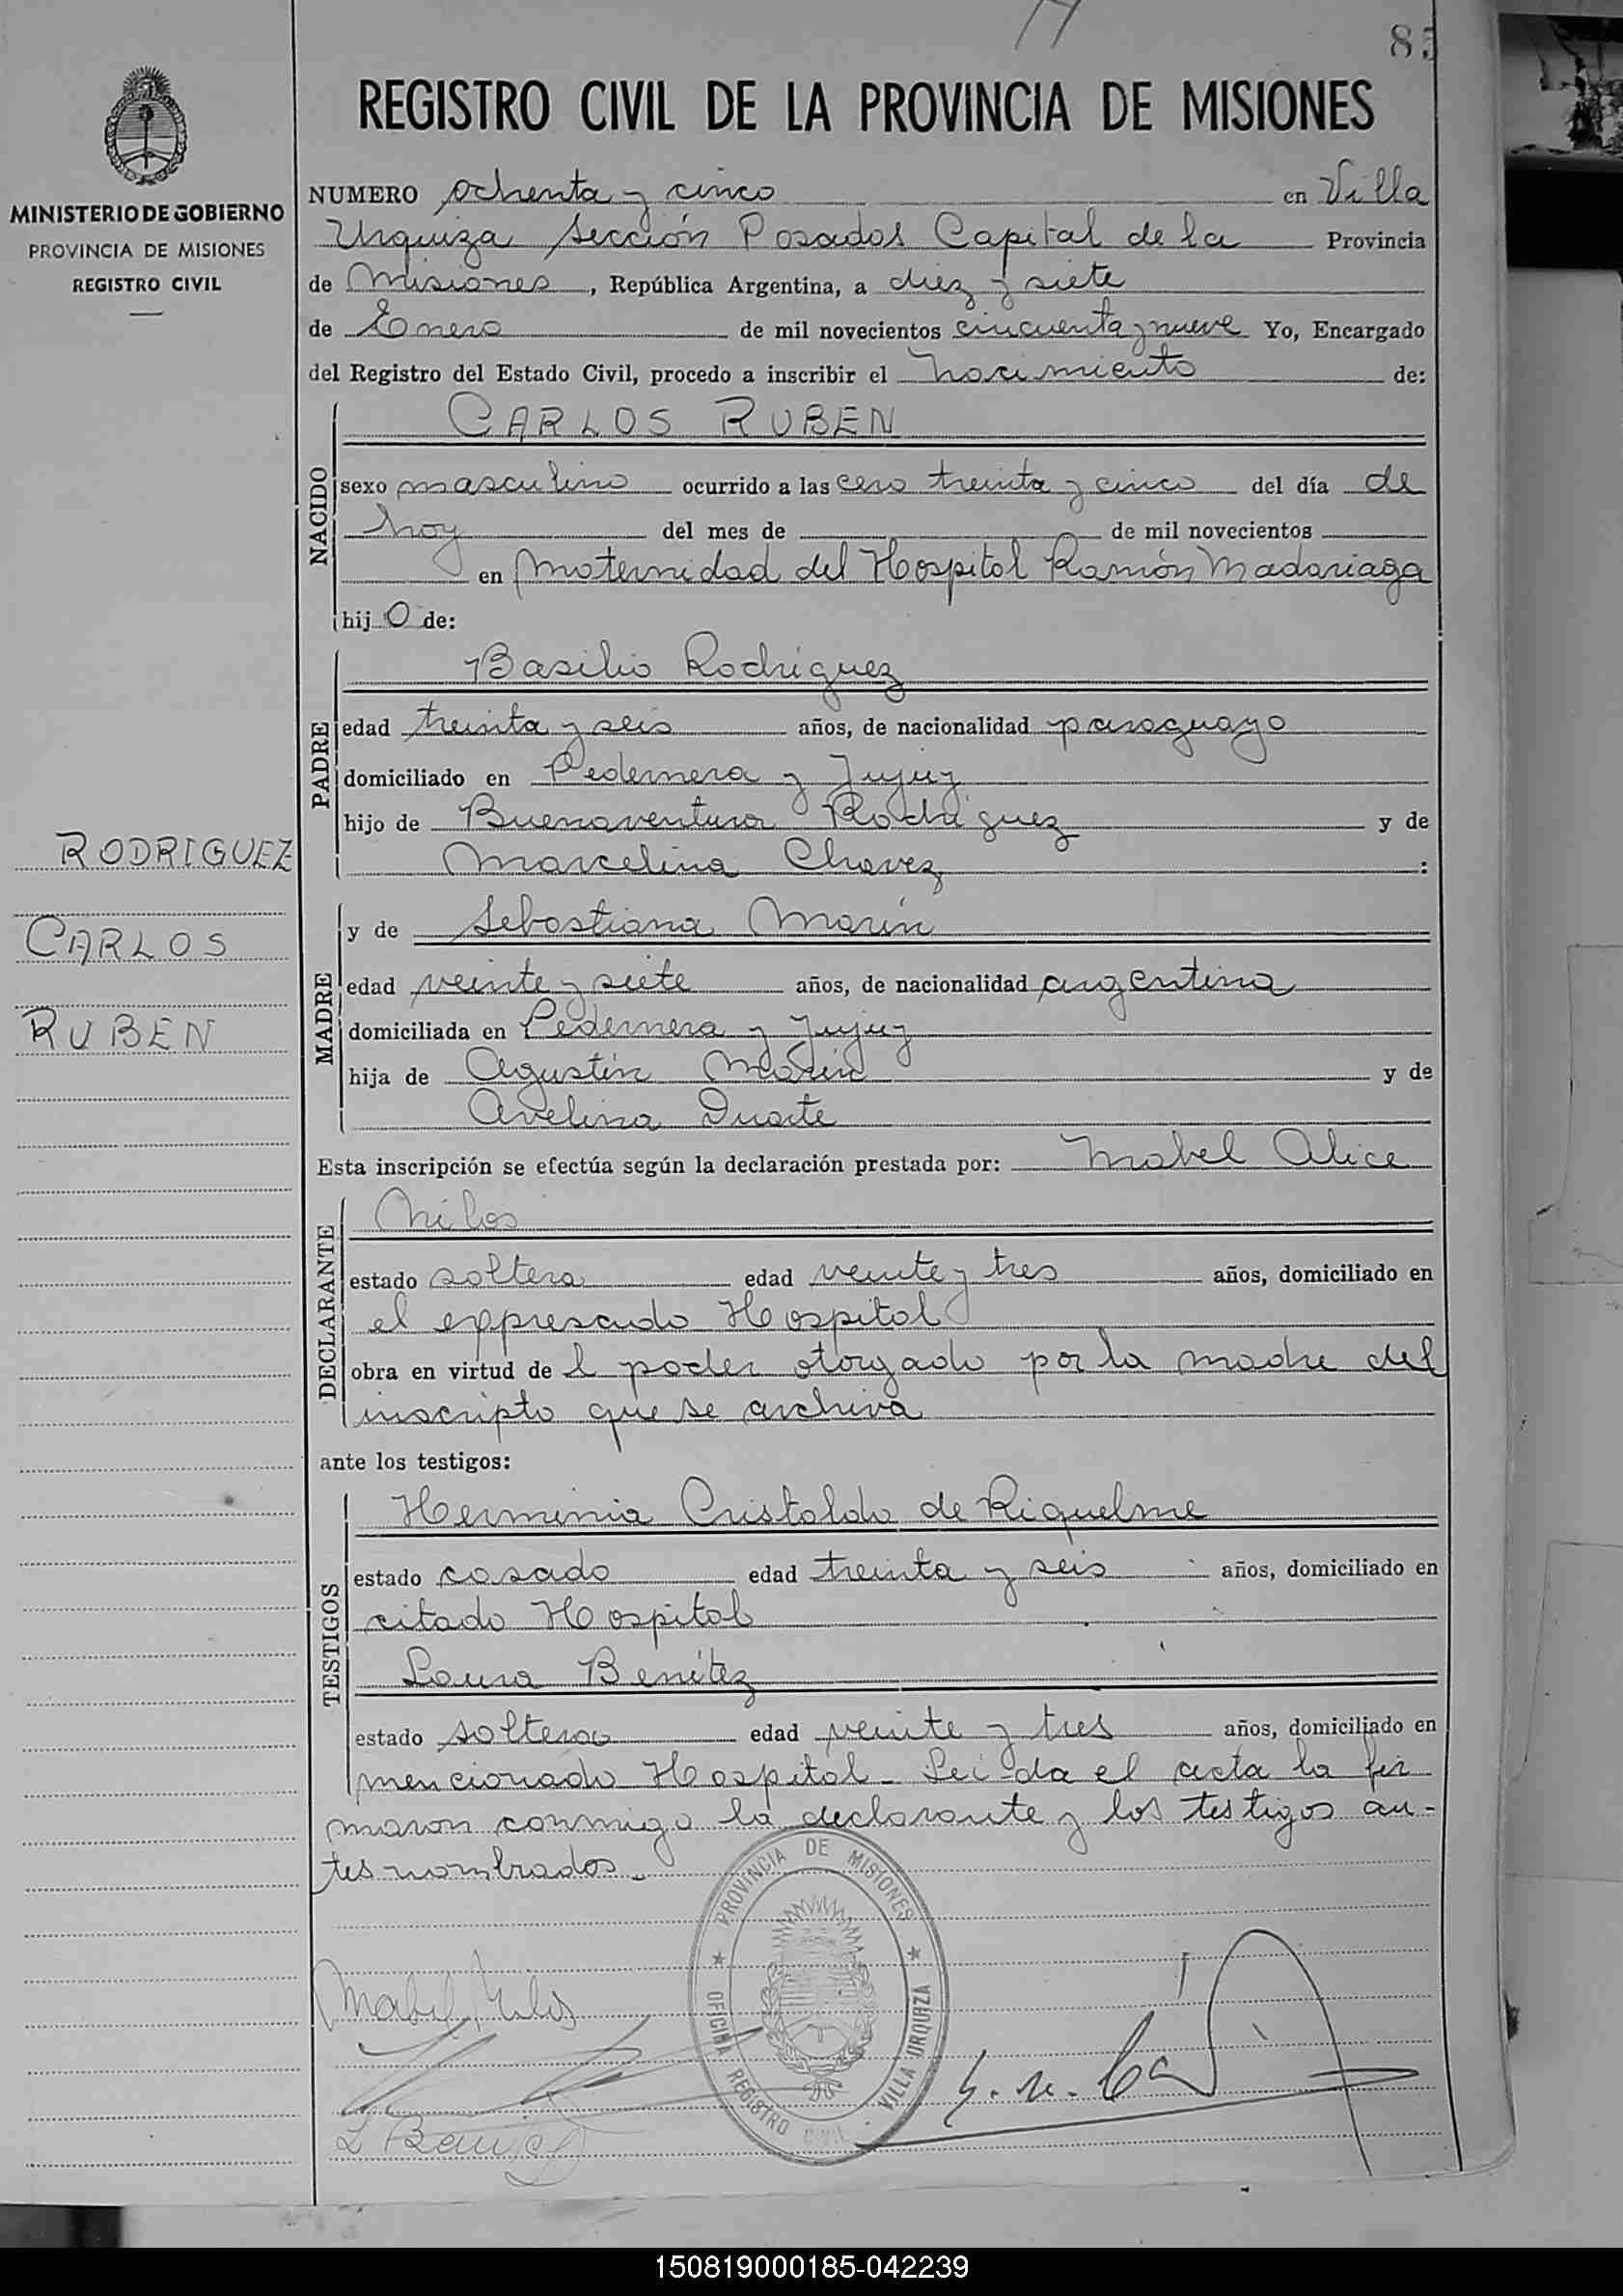 85
REGISTRO CIVIL DE LA PROVINCIA DE MISIONES
MINISTERIO DE GOBIERNO
PROVINCIA DE MISIONES
REGISTRO CIVIL
NUMERO ochenta y cinco en Villa
Urquiza Sección Posadas Capital de la Provincia
de Misiones, República Argentina, a diez y siete
de Enero de mil novecientos cincuenta y nueve Yo, Encargado
del Registro del Estado Civil, procedo a inscribir el nacimiento de:
NACIDO
CARLOS RUBEN
sexo masculino ocurrido a las cero treinta y cinco del día de
hoy del mes de de mil novecientos
en Maternidad del Hospital Ramón Madariaga
hijo de:
PADRE
Basilio Rodríguez
edad treinta y seis años, de nacionalidad paraguayo
domiciliado en Pedernera y Jujuy
hijo de Buenaventura Rodríguez y de
Marcelina Chavez :
RODRIGUEZ
CARLOS
RUBEN
MADRE
y de Sebastiana Marín
edad veinte y siete años, de nacionalidad argentina
domiciliada en Pedernera y Jujuy
hija de Agustín Marín y de
Avelina Duarte
Esta inscripción se efectúa según la declaración prestada por: Mabel Alice
DECLARANTE
estado soltera edad veinte y tres años, domiciliado en
el expresado Hospital
obra en virtud de l poder otorgado por la madre del
inscripto que se archiva
ante los testigos:
TESTIGOS
Herminia Cristaldo de Riquelme
estado casado edad treinta y seis años, domiciliado en
citado Hospital
Laura Benítez
estado soltera edad veinte y tres años, domiciliado en
mencionado Hospital - Leída el acta la fir
maron conmigo la declarante y los testigos an-
tes nombrados.-
PROVINCIA DE MISIONES
OFICINA REGISTRO CIVIL VILLA URQUIZA
150819000185-042239